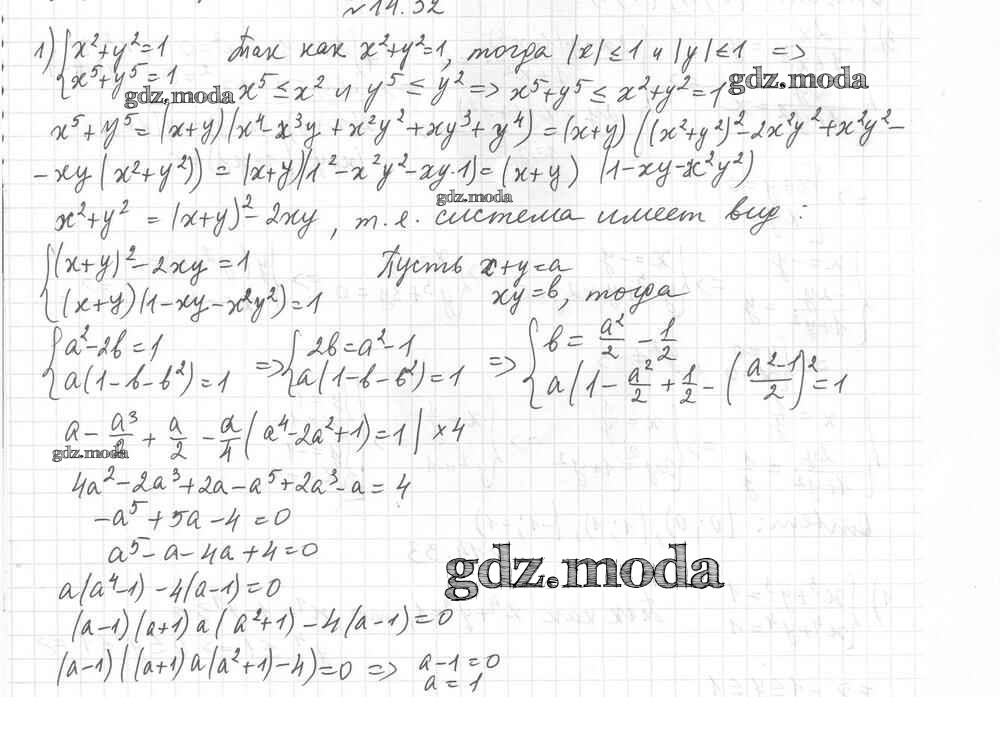 №14.32
1) {x²+y²=1 Так как x²+y²=1, тогда |x|≤1 и |y|≤1 =>
{x⁵+y⁵=1 x⁵≤x² и y⁵≤y² => x⁵+y⁵≤x²+y²=1
gdz.moda gdz.moda
x⁵+y⁵=(x+y)(x⁴-x³y+x²y²+xy³+y⁴)=(x+y)((x²+y²)²-2x²y²+x²y²-
-xy(x²+y²))=(x+y)(1²-x²y²-xy·1)=(x+y)(1-xy-x²y²)
gdz.moda
x²+y²=(x+y)²-2xy, т.е. система имеет вид:
{(x+y)²-2xy=1 Пусть x+y=a
{(x+y)(1-xy-x²y²)=1 xy=b, тогда
{a²-2b=1 => {2b=a²-1 => {b=a²/2-1/2
{a(1-b-b²)=1 {a(1-b-b²)=1 {a(1-a²/2+1/2-(a²-1/2)²=1
a-a³/2+a/2-a/4(a⁴-2a²+1)=1|×4
gdz.moda
4a²-2a³+2a-a⁵+2a³-a=4
-a⁵+5a-4=0
a⁵-a-4a+4=0
gdz.moda
a(a⁴-1)-4(a-1)=0
(a-1)(a+1)a(a²+1)-4(a-1)=0
(a-1)((a+1)a(a²+1)-4)=0 => a-1=0
a=1